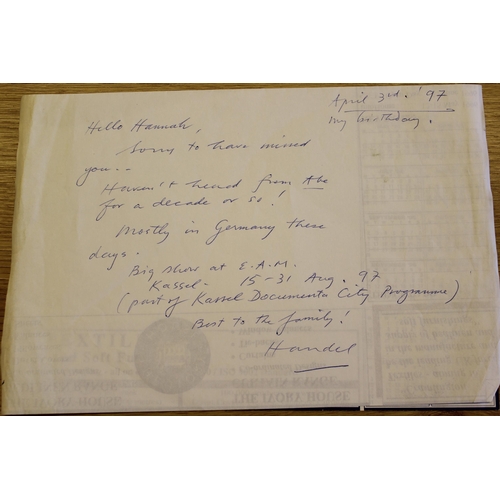 April 3rd. '97
my birthday.
Hello Hannah,
Sorry to have missed
you..
Haven't heard from Abe
for a decade or so!
Mostly in Germany these
days.
Big show at E.A.M.
Kassel - 15-31 Aug. 97
(part of Kassel Documenta City Programme)
Best to the family!
Handel